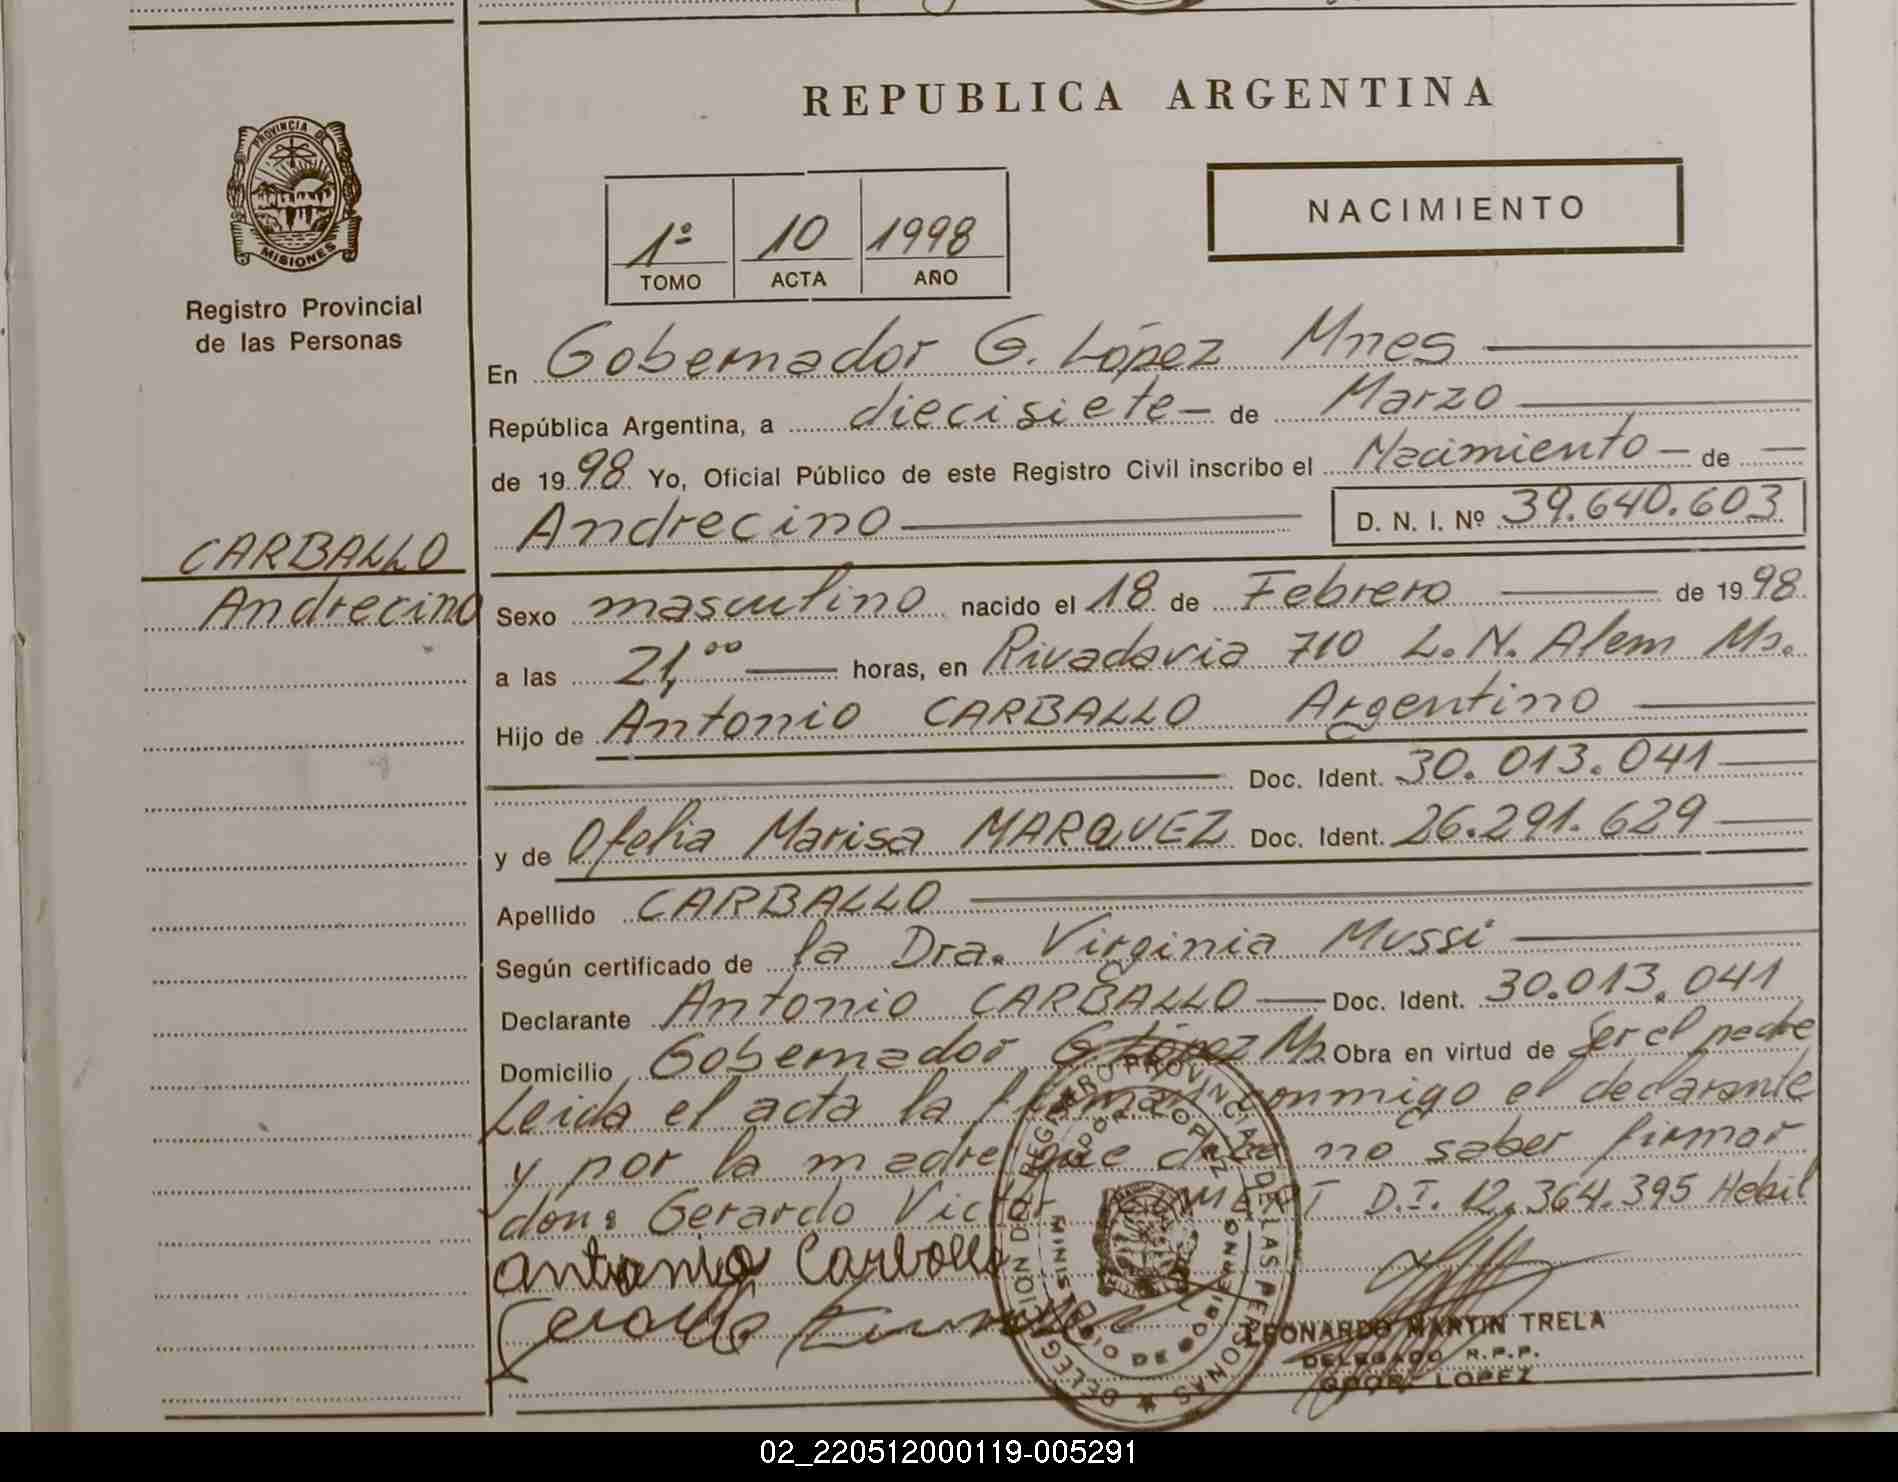 REPUBLICA ARGENTINA
PROVINCIA DE
MISIONES
Registro Provincial
de las Personas
NACIMIENTO
1º 10 1998
TOMO ACTA AÑO
En Gobernador G. López Mnes
República Argentina, a diecisiete de Marzo
de 1998 Yo, Oficial Público de este Registro Civil inscribo el Nacimiento de
Andrecino D. N. I. Nº 39.640.603
CARBALLO
Andrecino
Sexo masculino nacido el 18 de Febrero de 1998.
a las 21,00 horas, en Rivadavia 710 L.N. Alem Ms.
Hijo de Antonio CARBALLO Argentino
Doc. Ident. 30.013.041
y de Ofelia Marisa MARQUEZ Doc. Ident. 26.291.629
Apellido CARBALLO
Según certificado de la Dra. Virginia Mussi
Declarante Antonio CARBALLO Doc. Ident. 30.013.041
Domicilio Gobernador G. López Ms. Obra en virtud de Ser el padre
Leida el acta la firman conmigo el declarante
y por la madre que dice no saber firmar
don: Gerardo Victor D.I. 12.364.395 Hebil
Antonio Carballo
DELEGACION DEL REGISTRO PROVINCIAL DE LAS PERSONAS
GDOR. LOPEZ
MINISTERIO DE GOBIERNO
LEONARDO MARTIN TRELA
DELEGADO R.P.P.
GDOR. LOPEZ
02_220512000119-005291